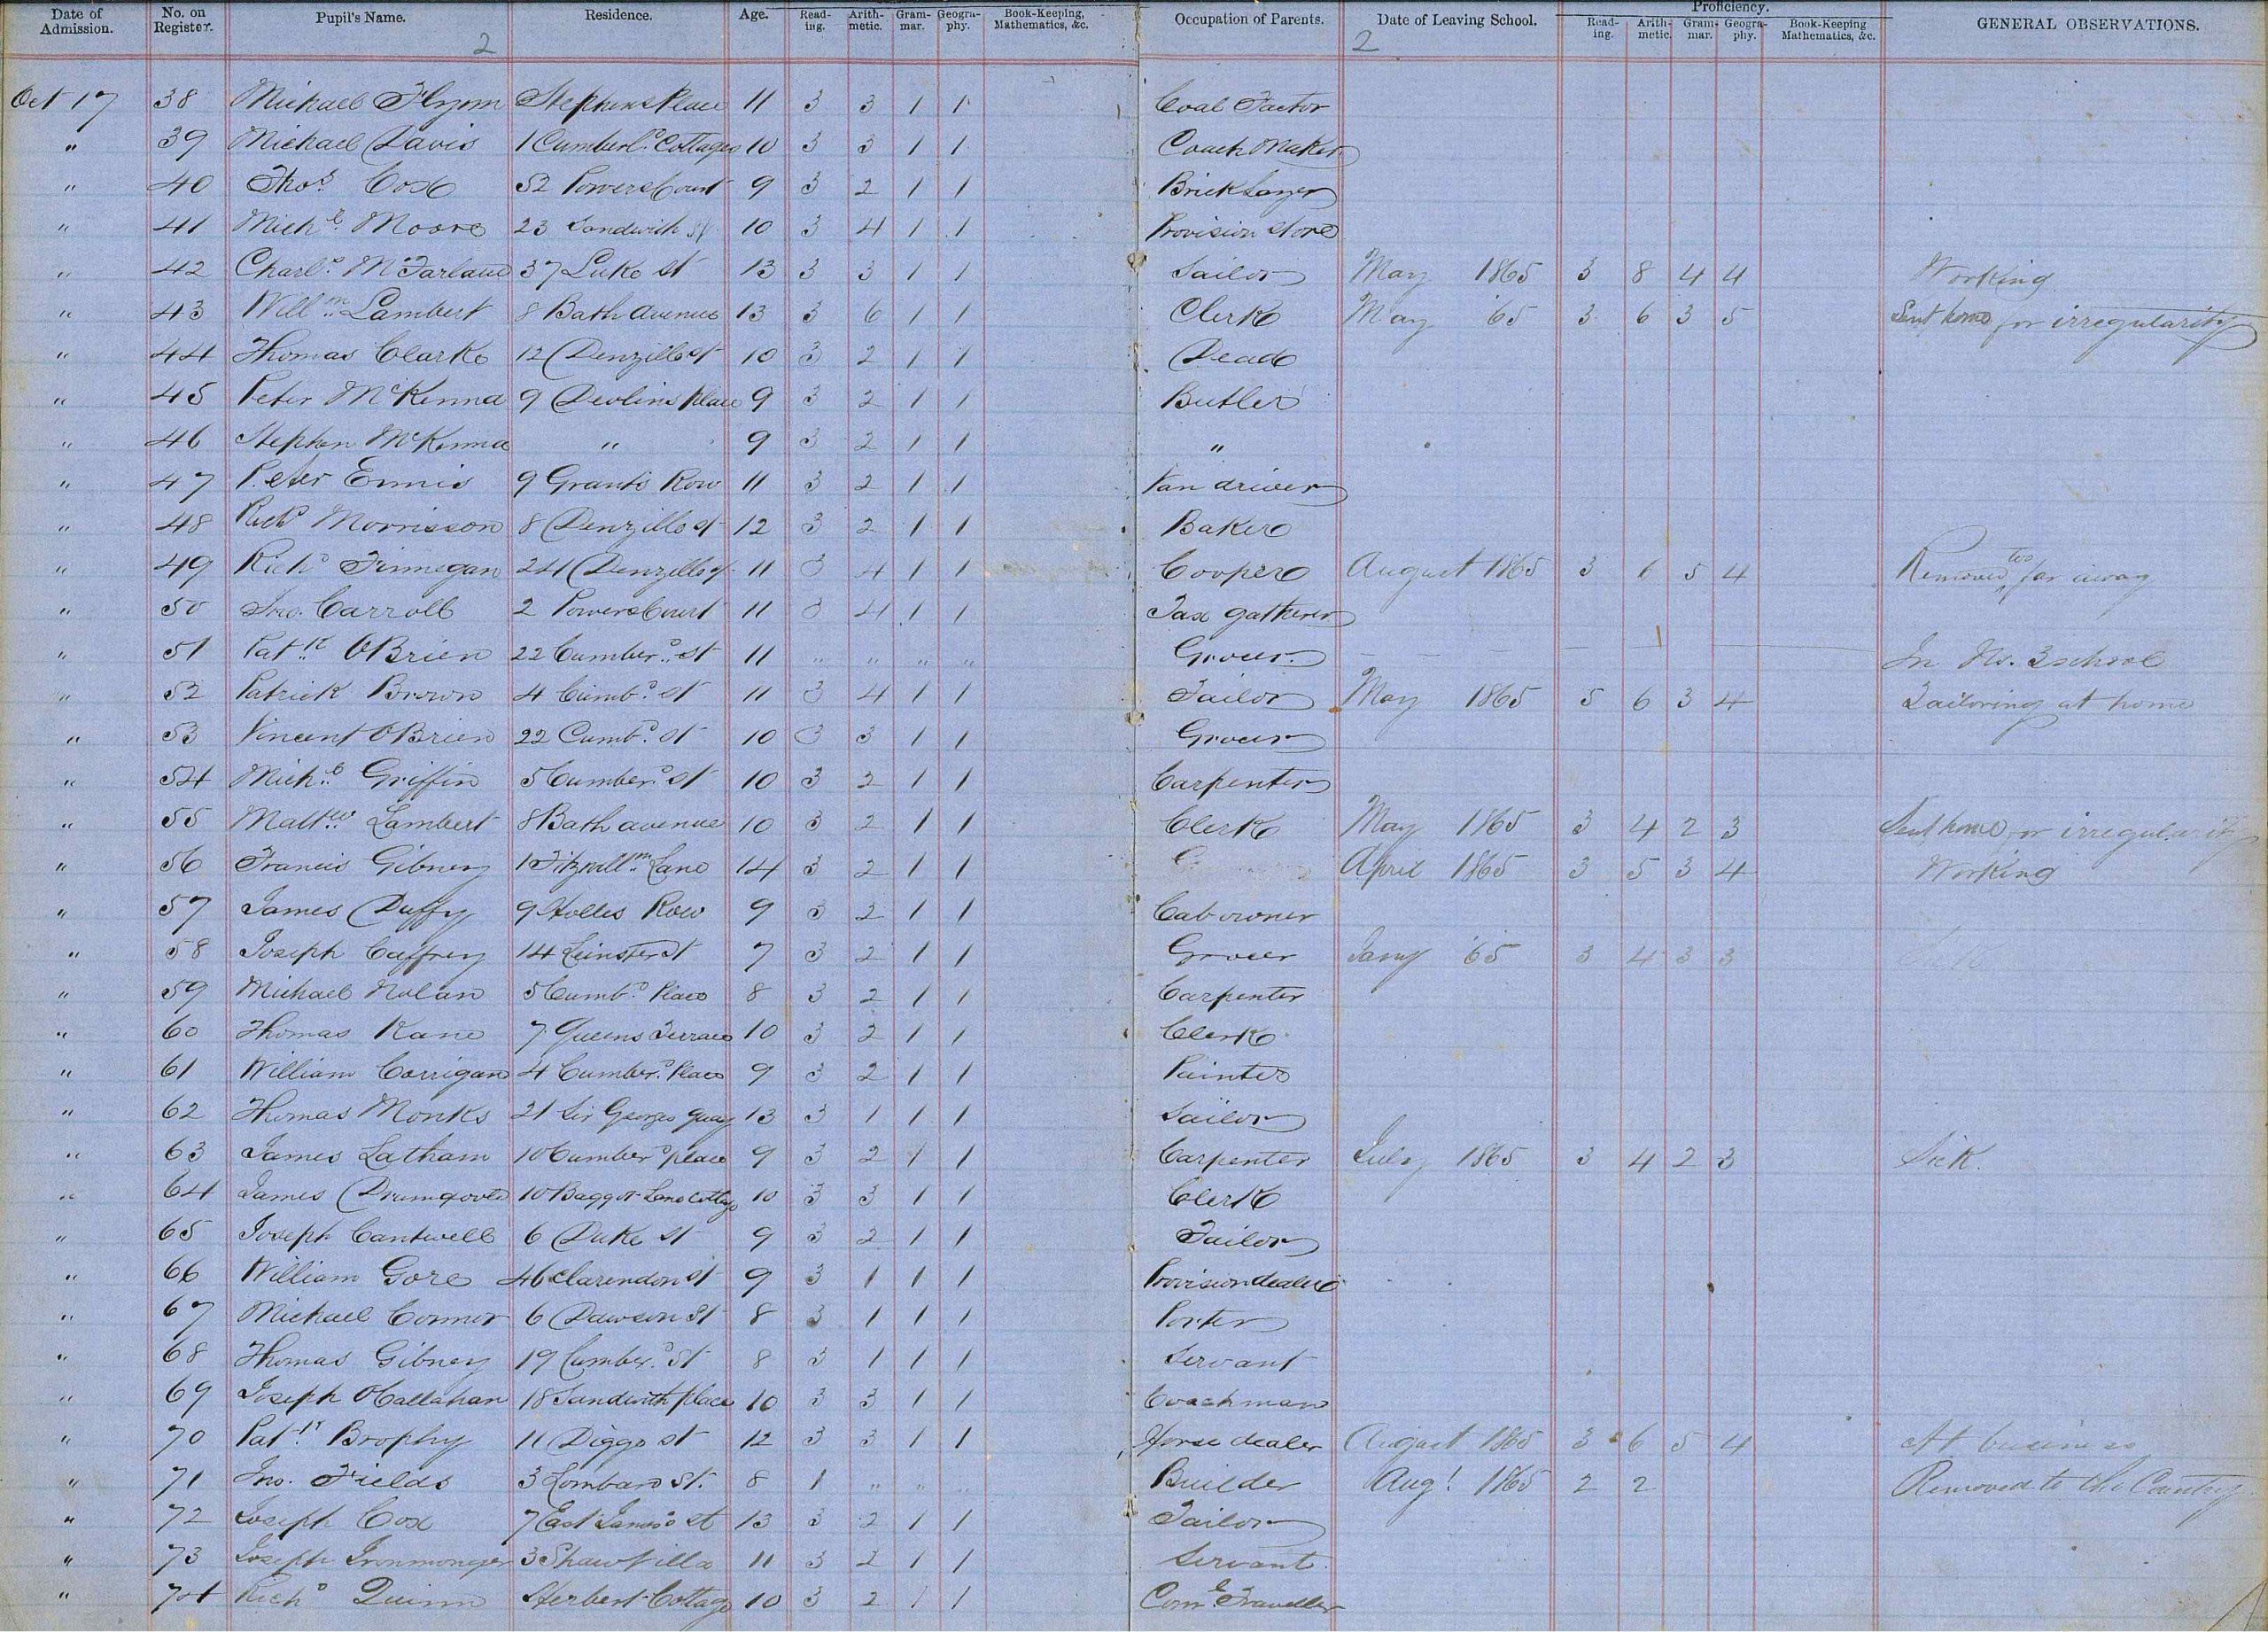 Date of Admission. No. on Register. Pupil's Name. Residence. Age. Read-ing. Arith-metic. Gram-mar. Geogra-phy. Book-Keeping, Mathematics, &c. Occupation of Parents. Date of Leaving School. Proficiency. Read-ing. Arith-metic. Gram-mar. Geogra-phy. Book-Keeping Mathematics, &c. GENERAL OBSERVATIONS.
2 2
Oct 17 38 Michael Flynn Stephens Place 11 3 3 1 1 Coal Factor
" 39 Michael Davis 1 Cumberld Cottages 10 3 3 1 1 Coach Maker
" 40 Thos Cox 52 Powers Court 9 3 2 1 1 Brick Layer
" 41 Michl Moore 23 Sandwith St 10 3 4 1 1 Provision Store
" 42 Charls McFarland 37 Luke St 13 3 3 1 1 Sailor May 1865 3 8 4 4 Working
" 43 Willm Lambert 8 Bath Avenue 13 3 6 1 1 Clerk May '65 3 6 3 5 Sent home for irregularity
" 44 Thomas Clarke 12 Denzille St 10 3 2 1 1 Dead
" 45 Peter McKenna 9 Devlins Place 9 3 2 1 1 Butler
" 46 Stephen McKenna " 9 3 2 1 1 "
" 47 Peter Ennis 9 Grants Row 11 3 2 1 1 Van driver
" 48 Richd Morrisson 8 Denzille St 12 3 2 1 1 Baker
" 49 Richd Finnegan 24 Denzille St 11 3 4 1 1 Cooper August 1865 3 6 5 4 Removed too far away
" 50 Jno. Carroll 2 Powers Court 11 3 4 1 1 Tax gatherer
" 51 Patk OBrien 22 Cumberd St 11 " " " " Grocer In No. 3 school
" 52 Patrick Brown 4 Cumbd St 11 3 4 1 1 Tailor May 1865 5 6 3 4 Tailoring at home
" 53 Vincent OBrien 22 Cumbd St 10 3 3 1 1 Grocer
" 54 Michl Griffin 5 Cumberd St 10 3 2 1 1 Carpenter
" 55 Mattew Lambert 8 Bath avenue 10 3 2 1 1 Clerk May 1865 3 4 2 3 Sent home for irregularity
" 56 Francis Gibney 1 Fitzwillm Lane 14 3 2 1 1 April 1865 3 5 3 4 Working
" 57 James Duffy 9 Holles Row 9 3 2 1 1 Cab owner
" 58 Joseph Caffrey 14 Leinster St 7 3 2 1 1 Grocer Jany '65 3 4 3 3
" 59 Michael Nolan 5 Cumbd Place 8 3 2 1 1 Carpenter
" 60 Thomas Kane 7 Queens Terrace 10 3 2 1 1 Clerk
" 61 William Corrigan 4 Cumberd Place 9 3 2 1 1 Painter
" 62 Thomas Monks 21 Sir Georges Quay 13 3 1 1 1 Sailor
" 63 James Latham 10 Cumberd place 9 3 2 1 1 Carpenter July 1865 3 4 2 3 Sick.
" 64 James Drumgoole 10 Baggot Lane Cottage 10 3 3 1 1 Clerk
" 65 Joseph Cantwell 6 Duke St 9 3 2 1 1 Tailor
" 66 William Gore 46 Clarendon St 9 3 1 1 1 Provision dealer
" 67 Michael Connor 6 Dawson St 8 3 1 1 1 Porter
" 68 Thomas Gibney 19 Cumberd St 8 3 1 1 1 Servant
" 69 Joseph OCallahan 18 Sandwith place 10 3 3 1 1 Coachman
" 70 Patk Brophy 11 Diggs St 12 3 3 1 1 Horse dealer August 1865 3 6 5 4 At business
" 71 Jno. Fields 3 Lombard St. 8 1 " " " Builder Augt 1865 2 2 Removed to the Country
" 72 Joseph Cox 7 East James's St 13 3 2 1 1 Tailor
" 73 Joseph Ironmonger 3 Shaw Villa 11 3 2 1 1 Servant
" 74 Richd Quinn Herbert Cottage 10 3 2 1 1 Coml Traveller